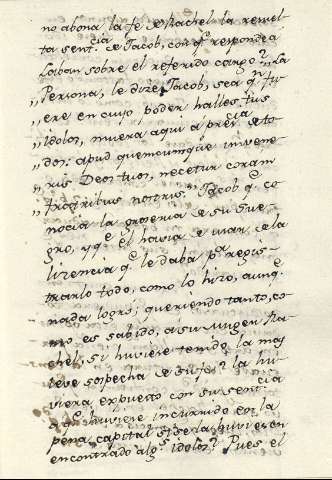 no abona la fe de Rachel la resuel
ta sent.cia de Jacob, con q.e responde a
Laban sobre el referido cargo? La
„ Persona, le dize Jacob, sea q.n fu
„ ere en cuio poder halles tus
„ idolos, muera aqui a pres.cia de to
„ dos: apud quemcumque invene
„ ris Deos tuos, necetur coram
„ fratribus nostris. Jacob q.e co
nocia la groseria de su Sue
gro, y q.e el havia de usar de la
lizencia q.e le daba p.a regis
trarlo todo, como lo hizo, aunq.e
nada logró; queriendo tanto, co
mo es sabido, a su muger Ra
chel, si huviere tenido la mas
leve sospecha de ella? la hu
viera expuesto con su sent.cia
a q.e huviere incurrido en la
pena capital si se la huviere en
encontrado alg.s idolos? Pues el